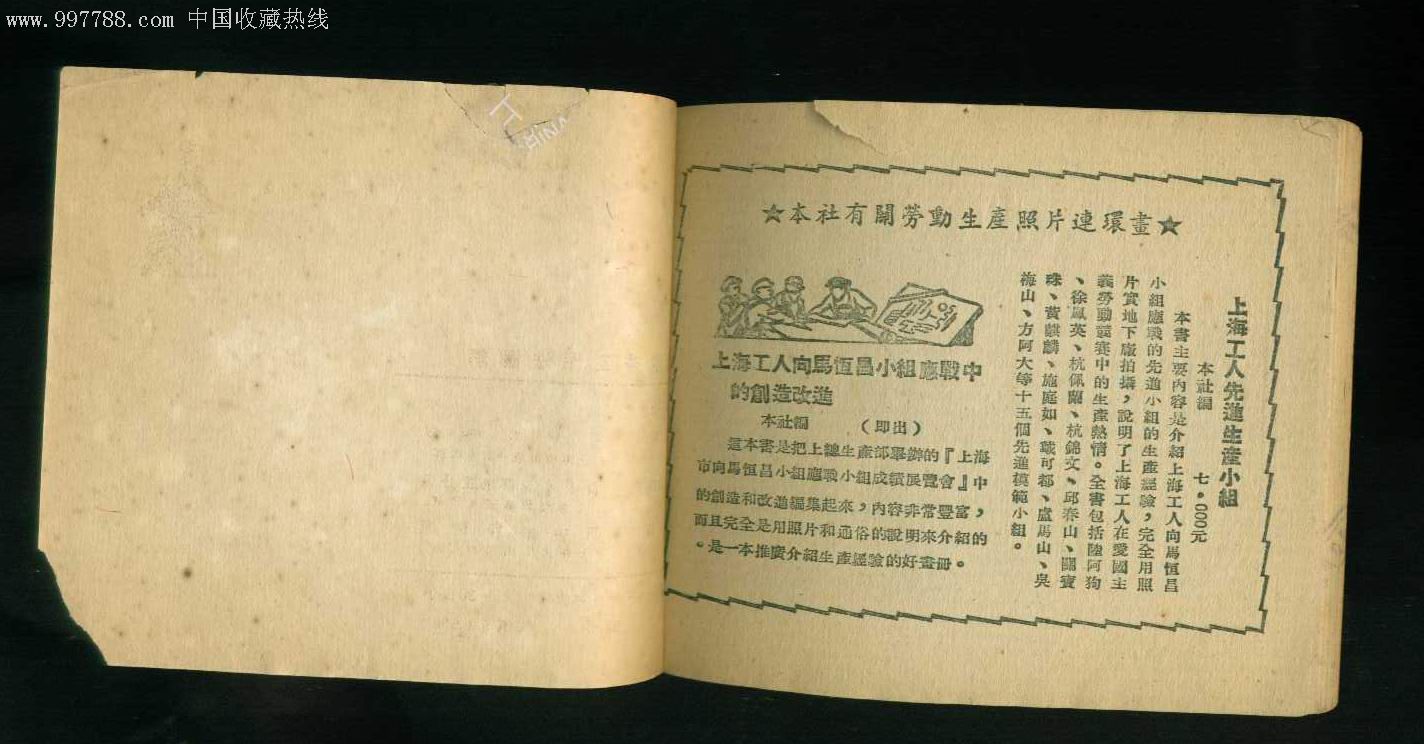 www.997788.com 中国收藏热线
★本社有關勞動生產照片連環畫★
上海工人先進生產小組
本社編 七・000元
本書主要內容是介紹上海工人向馬恆昌
小組應戰的先進小組的生產經驗,完全用照
片實地下廠拍攝,說明了上海工人在愛國主
義勞動競賽中的生產熱情。全書包括陸阿狗
、徐鳳英、杭佩蘭、杭錦文、邱春山、寶
珠、黃麒麟、施庭如、可都、盧馬山、吳
梅山、方阿大等十五個先進模範小組。
上海工人向馬恆昌小組應戰中
的創造改進
本社編 (即出)
這本書是把上總生產部舉辦的『上海
市向馬恆昌小組應戰小組成績展覽會』中
的創造和改進編集起來,內容非常豐富,
而且完全是用照片和通俗的說明來介紹的
。是一本推廣介紹生產經驗的好畫冊。